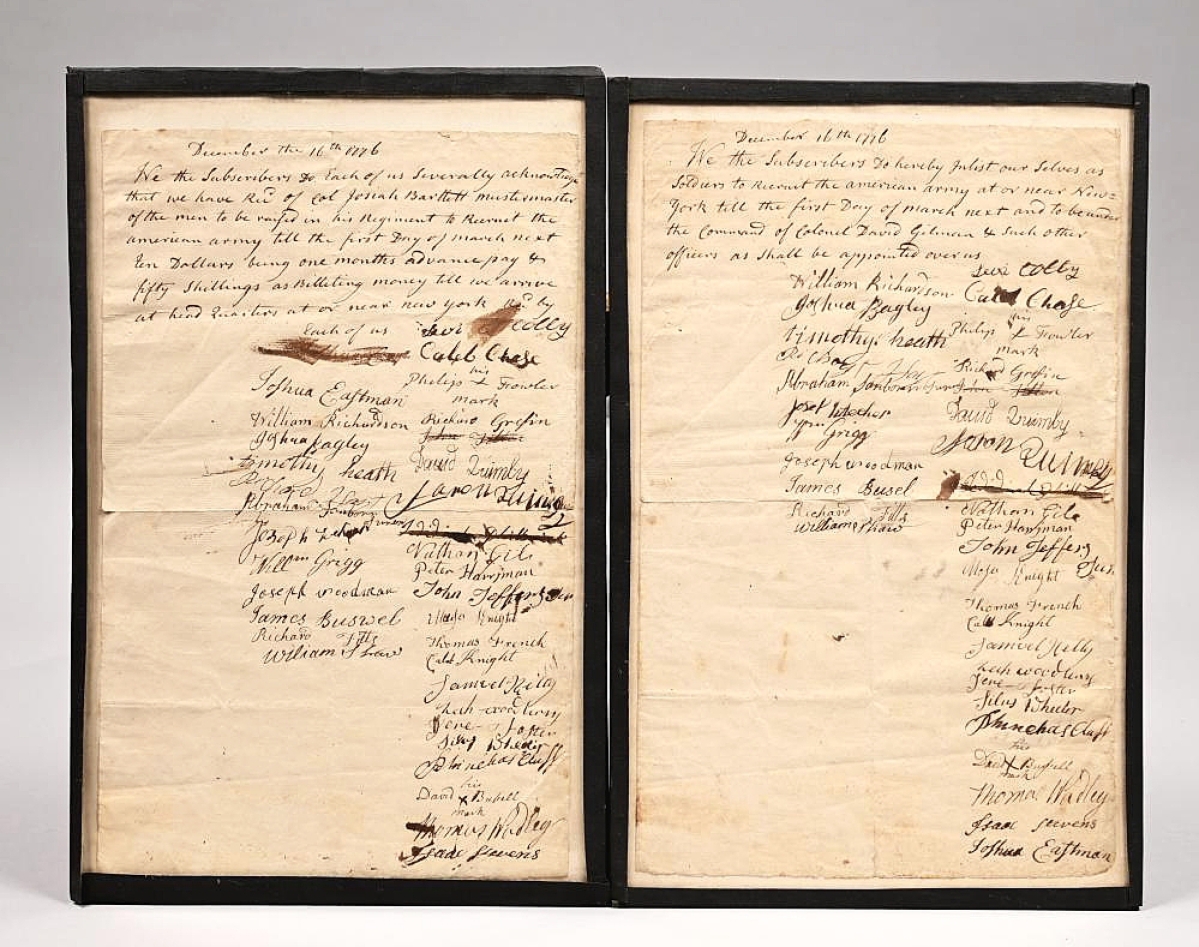 December the 16th 1776
We the Subscribers Do Each of us Severally acknowledge
that we have Recd of Col Josiah Bartlett mustermaster
of the men to be raised in his Regiment to Recruit the
american army till the first Day of march next
ten Dollars being one months advance pay &
fifty Shillings as Billeting money till we arrive
at head Quarters at or near new york Recd by
Each of us
Levi Colby
Caleb Chase
Philip his + Fowler
mark
Richard Grefin
David Quimby
Aaron Quimby
Nathan Gile
Peter Harryman
John Jeffers Jun
Moses Knight
Thomas French
Caleb Knight
Samuel Kelly
Jere Foster
Silas Wheeler
Phinehas Cluff
his
David x Busell
mark
Thomas Wadley
Isaac Stevens
Joshua Eastman
William Richardson
Joshua Bagley
timothy heath
Abraham Sanborn
Joseph
Willm Grigg
Joseph woodman
James Buswel
Richard Fitts
William Shaw
December 16th 1776
We the Subscribers Do hereby Inlist our Selves as
Soldiers to Recruit the american army at or near New=
York till the first Day of march next and to be under
the Command of Colonel David Gilman & Such other
officers as Shall be appointed over us
Levi Colby
Caleb Chase
his
Philip + Fowler
mark
Richard Grefin
David Quimby
Aaron Quimby
Nathan Gile
Peter Harryman
John Jeffers
Jun
Moses Knight
Thomas French
Caleb Knight
Samuel Kelly
Jere Foster
Silas Wheeler
Phinehas Cluff
his
David x Busell
mark
Thomas Wadley
Isaac Stevens
Joshua Eastman
William Richardson
Joshua Bagley
timothy heath
Abraham Sanborn
Grigg
Joseph woodman
James Busel
Richard Fitts
William Shaw